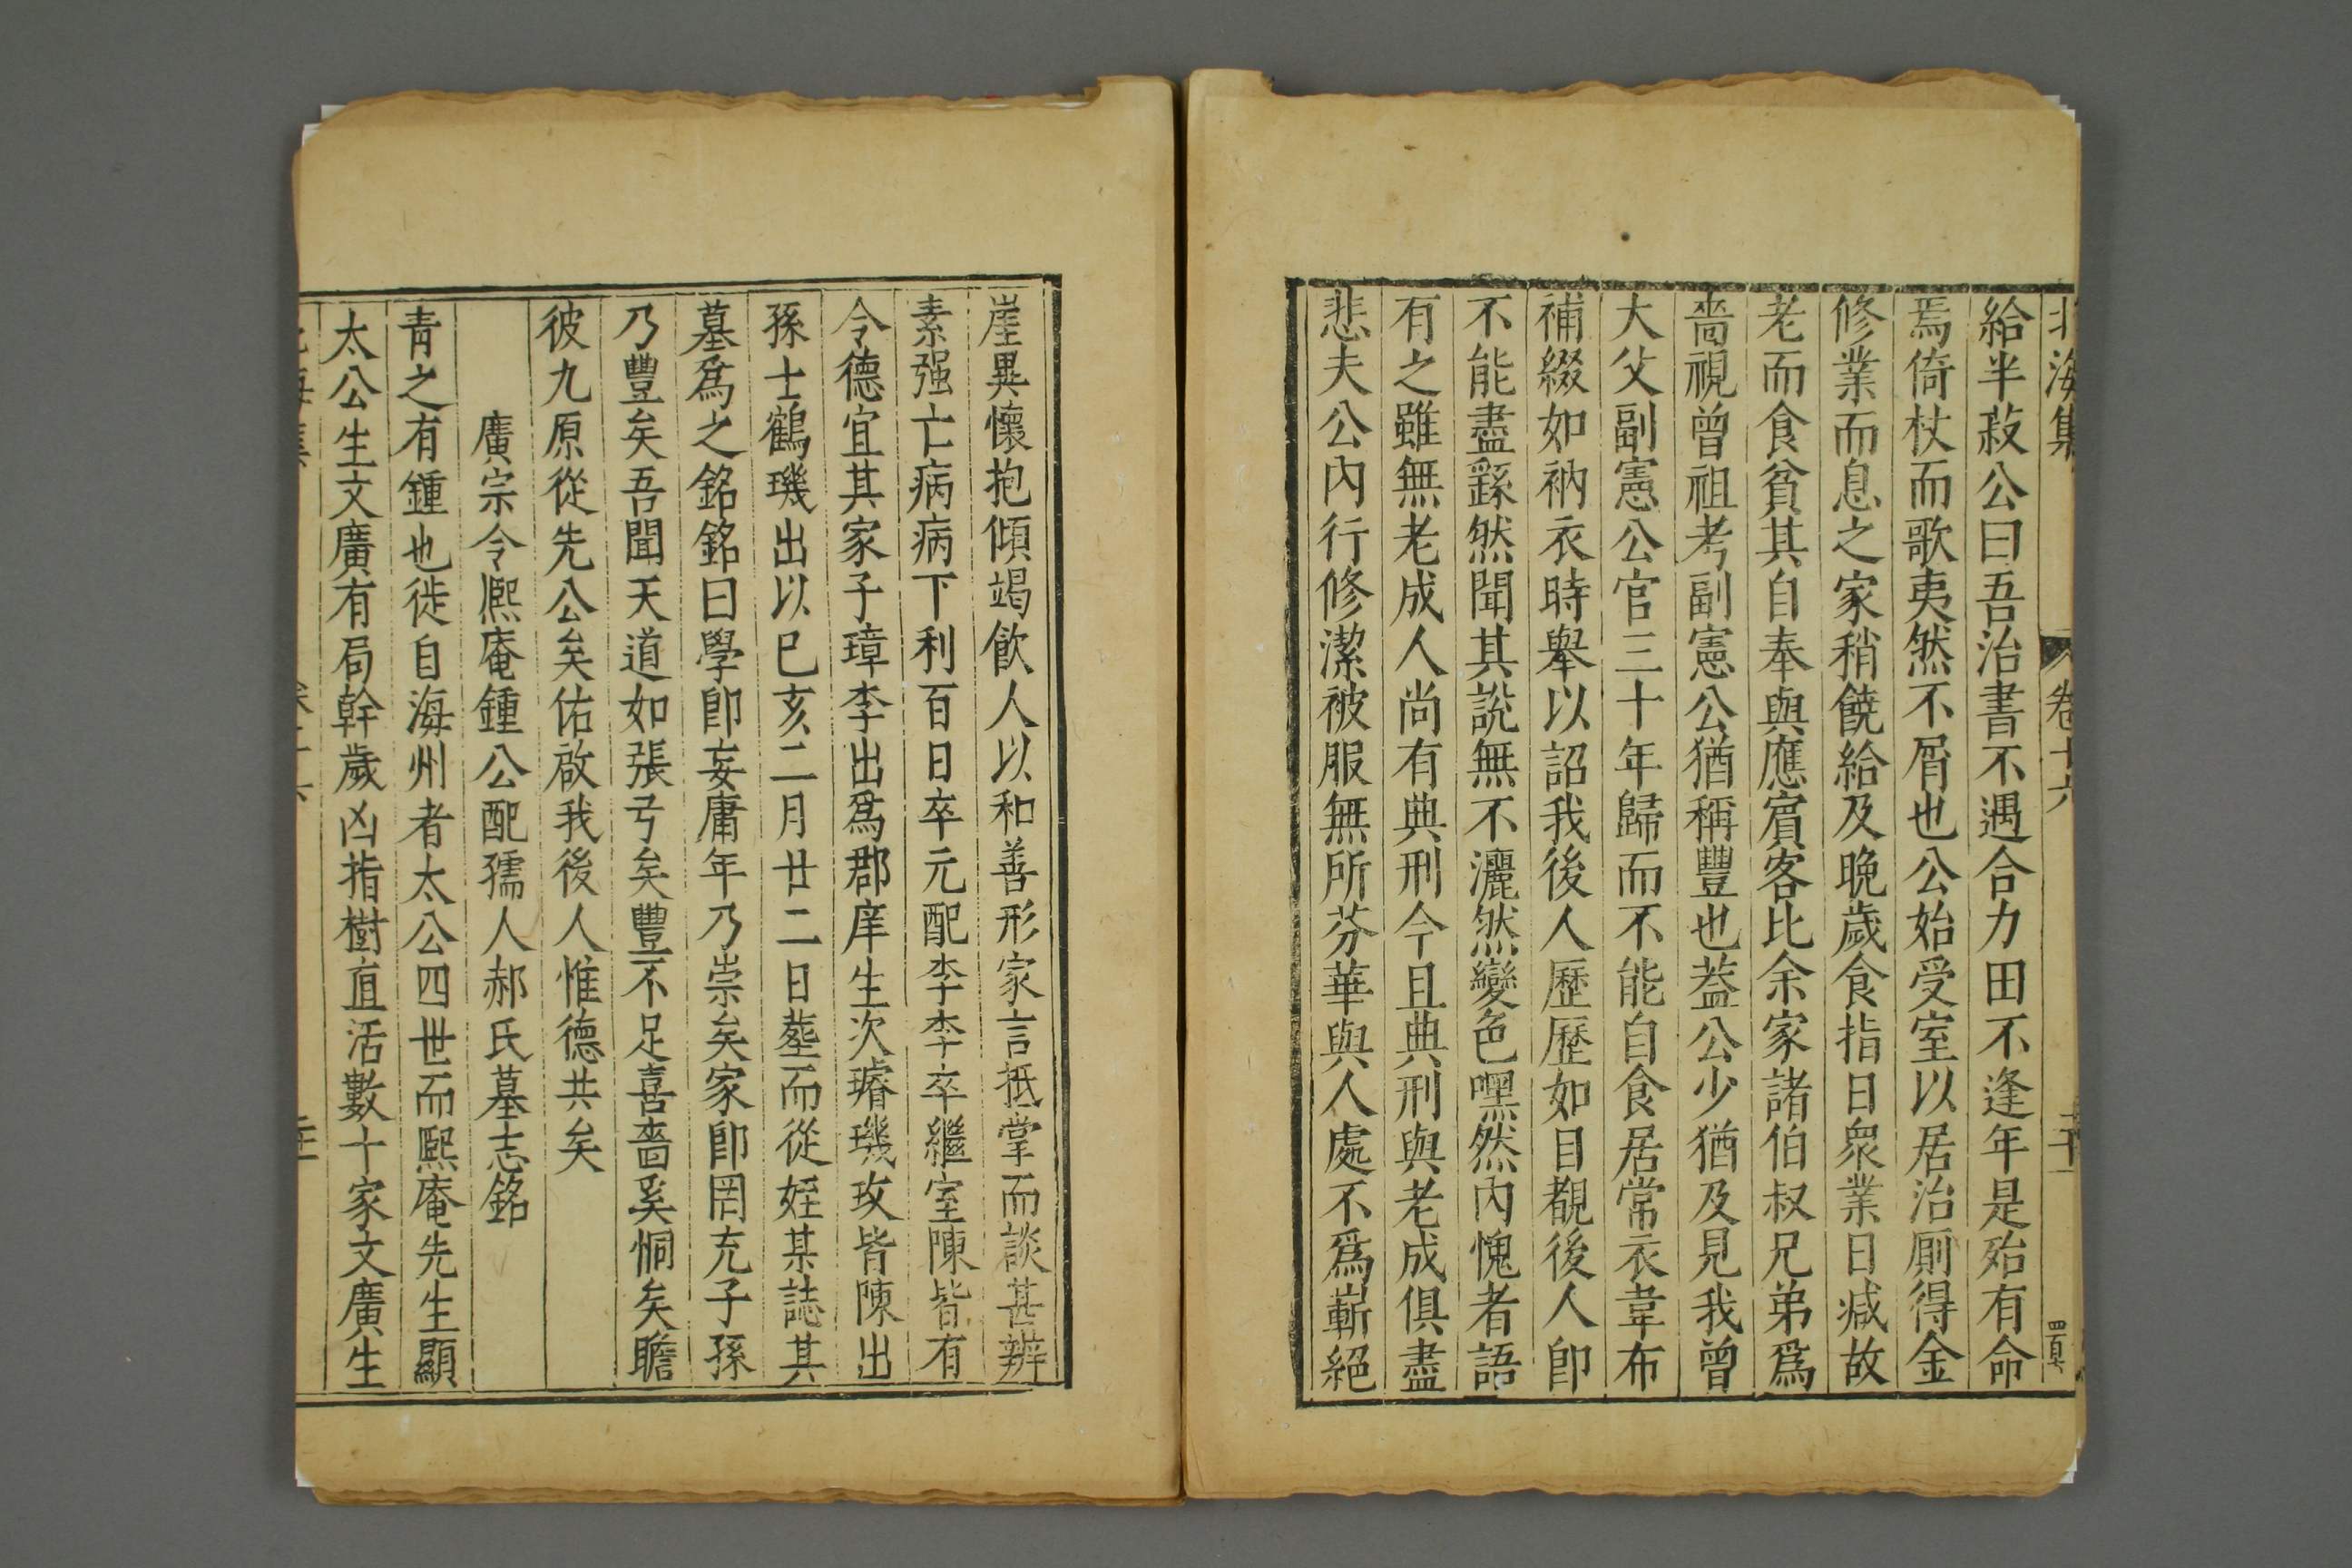 北海集 卷十六 二十一
給半菽公曰吾治書不遇合力田不逢年是殆有命
焉倚杖而歌夷然不屑也公始受室以居治廁得金
修業而息之家稍饒給及晚歲食指日衆業日减故
老而食貧其自奉與應賓客比余家諸伯叔兄弟爲
嗇視曾祖考副憲公猶稱豐也葢公少猶及見我曾
大父副憲公官三十年歸而不能自食居常衣韋布
補綴如衲衣時舉以詔我後人歷歷如目覩後人卽
不能盡繇然聞其說無不灑然變色嘿然內愧者語
有之雖無老成人尚有典刑今且典刑與老成俱盡
悲夫公內行修潔被服無所芬華與人處不爲嶄絕
崖異懷抱傾竭飲人以和善形家言抵掌而談甚辨
素强亡病病下利百日卒元配李李卒繼室陳皆有
令德宜其家子璋李出爲郡庠生次璿璣玫皆陳出
孫士鶴璣出以巳亥二月廿二日塟而從姪某誌其
墓爲之銘銘曰學卽妄庸年乃崇矣家卽罔充子孫
乃豐矣吾聞天道如張弓矣豐不足喜嗇奚恫矣瞻
彼九原從先公矣佑啟我後人惟德共矣
廣宗令熈庵鍾公配孺人郝氏墓志銘
青之有鍾也徙自海州者太公四世而熙庵先生顯
太公生文廣有局幹歲凶指樹直活數十家文廣生